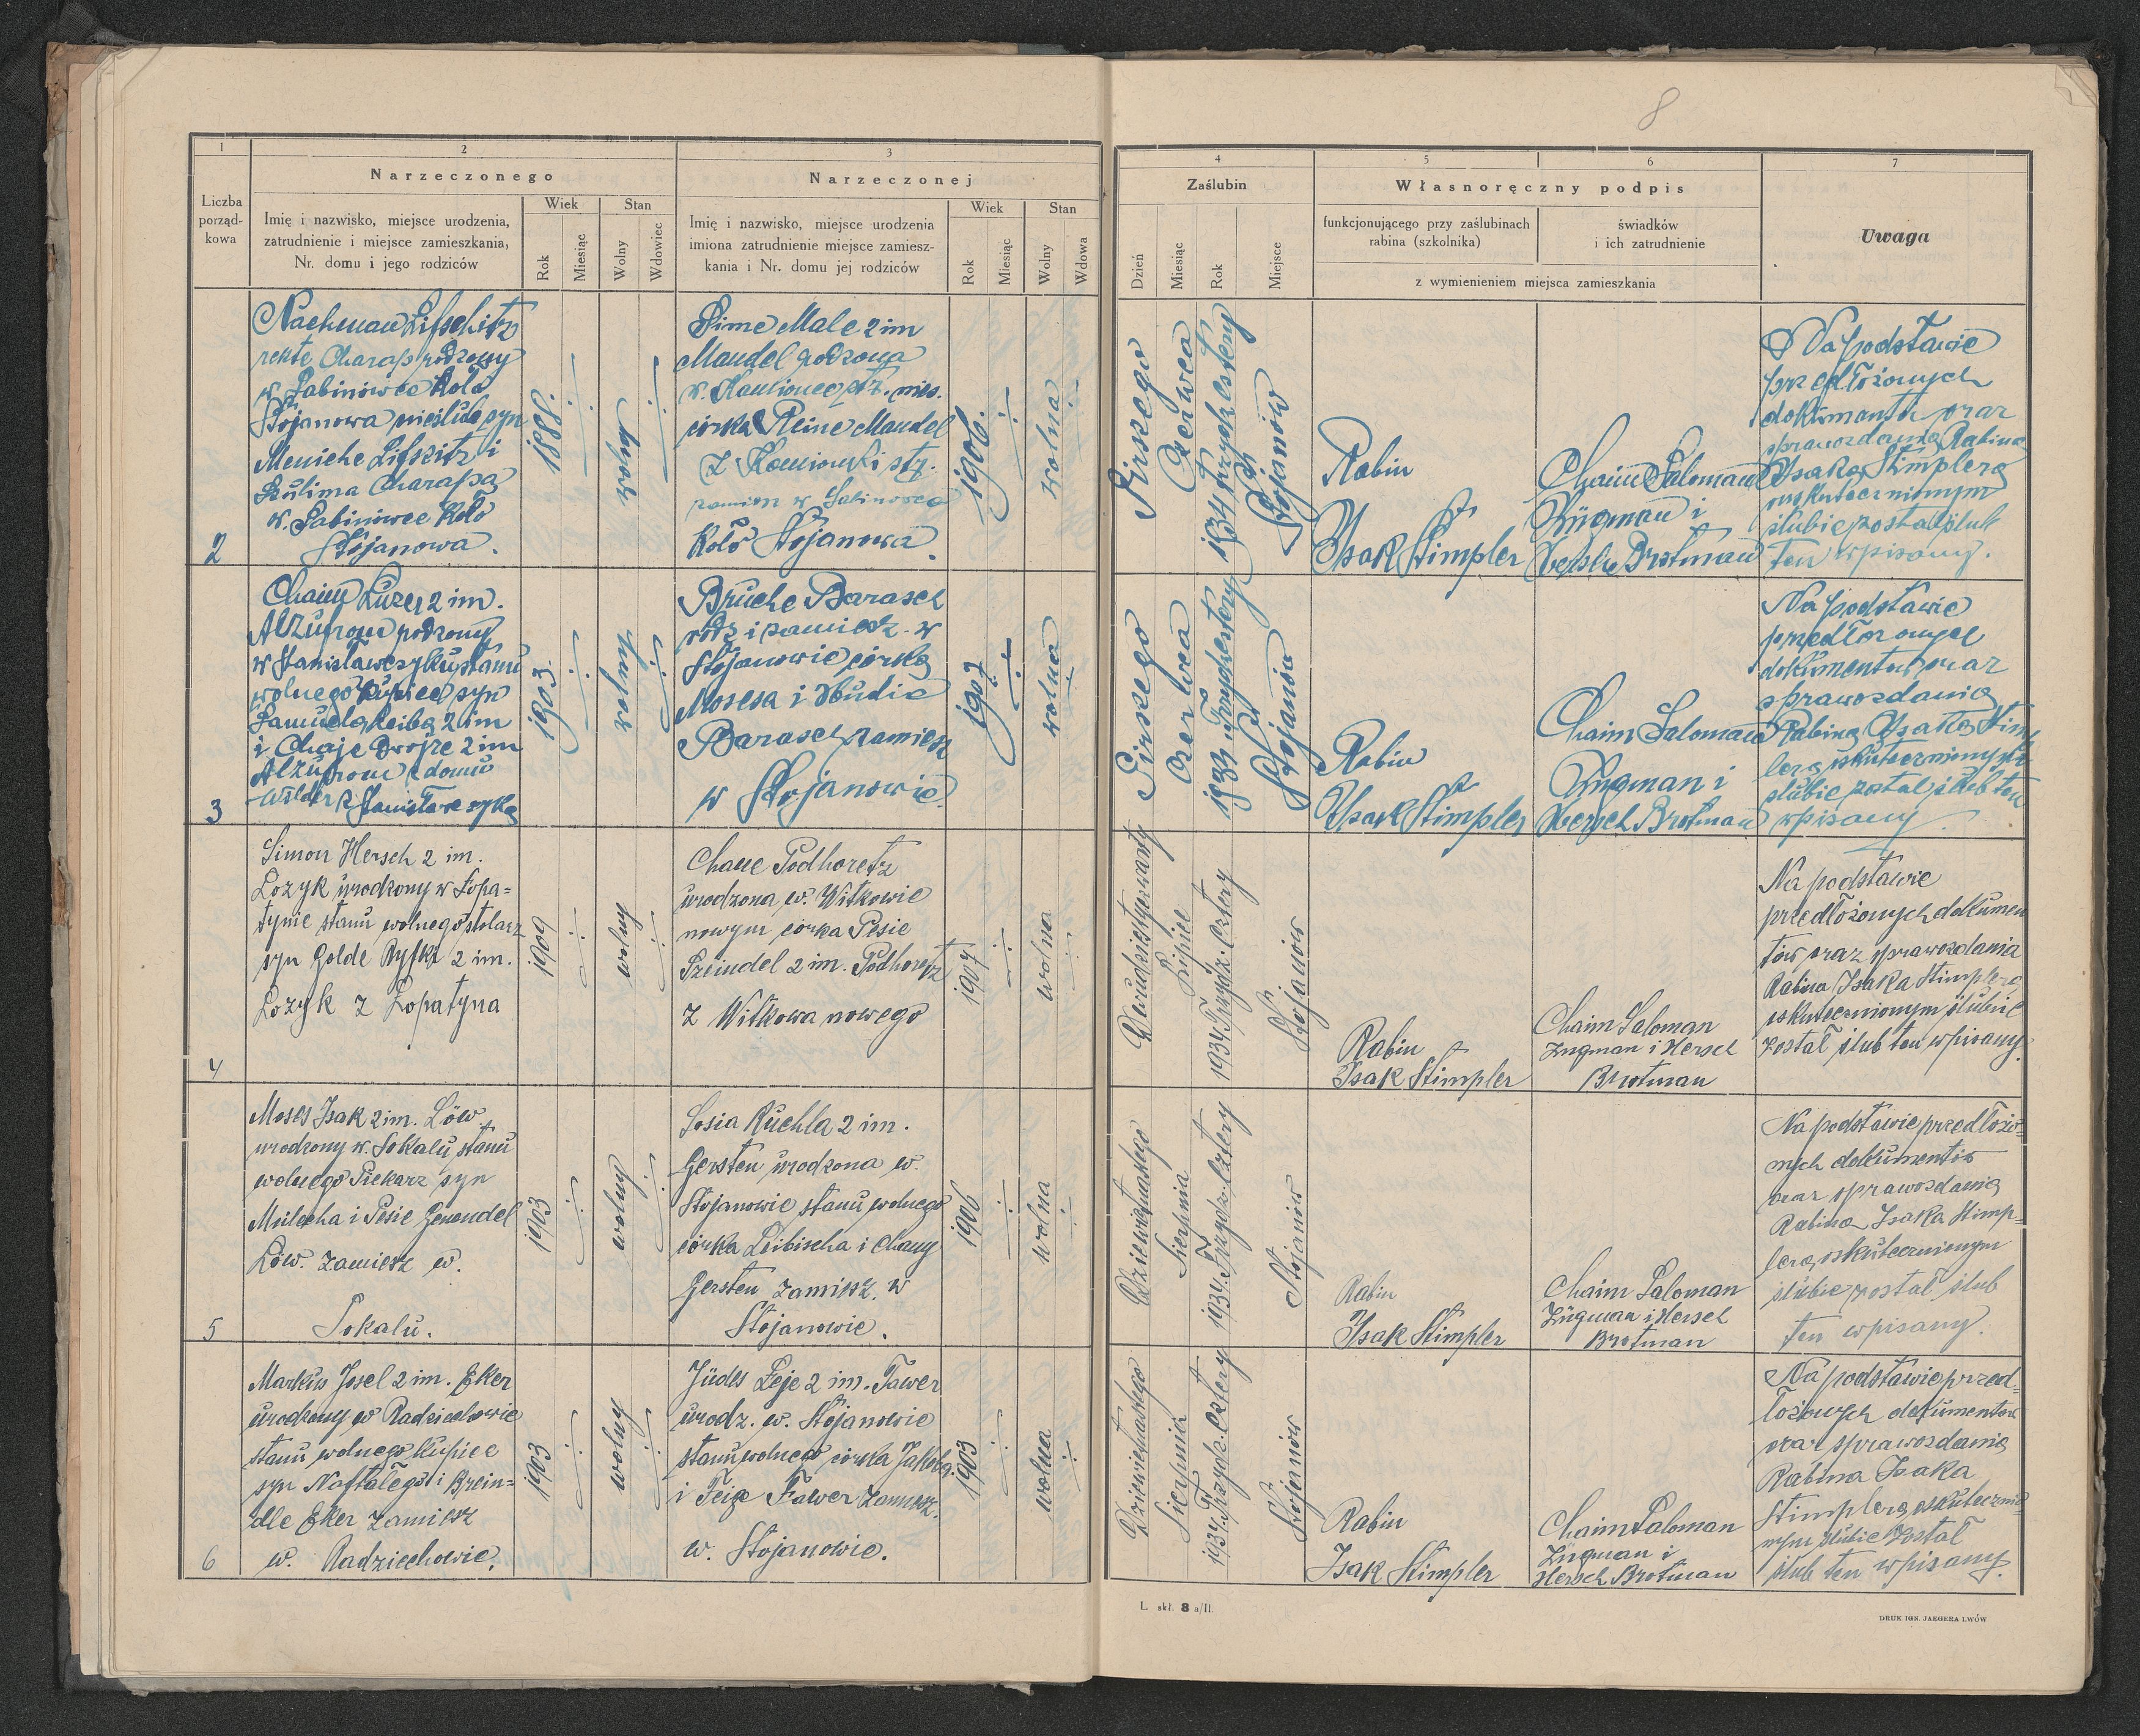 8
1
2
Narzeczonego
3
Narzeczonej
4
Zaślubin
5
6
Własnoręczny podpis
7
Uwaga
Liczba
porząd-
kowa
Imię i nazwisko, miejsce urodzenia,
zatrudnienie i miejsce zamieszkania,
Nr. domu i jego rodziców
Wiek
Rok
Miesiąc
Stan
Wolny
Wdowiec
Imię i nazwisko, miejsce urodzenia
imiona zatrudnienie miejsce zamiesz-
kania i Nr. domu jej rodziców
Wiek
Rok
Miesiąc
Stan
Wolny
Wdowa
Dzień
Miesiąc
Rok
Miejsce
funkcjonującego przy zaślubinach
rabina (szkolnika)
świadków
i ich zatrudnienie
z wymienieniem miejsca zamieszkania
2
Nachman Lifschitz
rekte Charap rodzony
w Sabinowce Koło
Stojanowa nieślub syn
Meniche Lifszitz i
Szulima Charapa
w. Sabiniwce Koło
Stojanowa.
1888.
wolny
Male 2 im
Mandel rodzona
córka Reine Mandel
zamiesz w Sabinowce
Koło Stojanowa.
1906.
wolna
Pirszego
Czerwca
1934 Trzydz. cztery
Stojanów
Rabin
Isak Stimpler
Chaim Saloman
Züngman i
Hersch Brotman
Na podstawie
przedłożonych
dokumentu oraz
sprawozdania Rabina
Isaka Stimplera
uskutecznionym
ślubie został ślub
ten wpisany.
3
Chaim Luzer 2 im.
rodzony
w Stanisławczyku stanu
wolnego kupiec syn
Samuela Leiba 2 im
i Chaje Dwojre 2 im
z domu
Wilder z Stanisławczyka
1903.
wolny
Bruche Barasch
rodz i zamiesz. w
Stojanowie córka
Mosesa i Hudie
Barasch zamiesz
w Stojanowie.
1907
wolna
Pirszego
Czerwca
1934 Trzydz cztery
Stojanów
Rabin
Isak Stimpler
Chaim Saloman
Züngman i
Hersch Brotman
Na podstawie
przedłożonych
dokumentu oraz
sprawozdania
Rabina Isaka Stimp
lera uskutecznionym
ślubie został ślub ten
wpisany.
4
Simon Hersch 2 im.
Lozyk urodzony w Łopa=
tynie stanu wolnego stolarz
syn Golde Ryfke 2 im.
Lozyk z Łopatyna
1909
wolny
Chane Podhoretz
urodzona w. Witkowie
nowym córka Pesie
Szeindel 2 im. Podhoretz
z Witkowa nowego
1907
wolna
Lipiec
1934 Trzydz. cztery
Stojanów
Rabin
Isak Stimpler
Chaim Saloman
Züngman i Hersch
Brotman
Na podstawie
przedłożonych dokumen
tów oraz sprawozdania
Rabina Isaka Stimplera
uskutecznionym ślubie
został ślub ten wpisany.
5
Moses Isak 2 im. Löw
urodzony w. Sokalu stanu
wolnego Piekarz syn
Milecha i Pesie Genendel
Löw. zamiesz w.
Sokalu.
1903
wolny
Sosia Ruchla 2 im.
Gersten urodzona w.
Stojanowie stanu wolnego
córka Leibischa i Chany
Gersten zamiesz. w
Stojanowie.
1906
wolna
Dziewiętnastego
Sierpnia
1934. Trzydz. cztery
Stojanów
Rabin
Isak Stimpler
Chaim Saloman
Züngman i Hersch
Brotman
Na podstawie przedłożo=
nych dokumentów
oraz sprawozdania
Rabina Isaka Stimp=
lera, uskutecznionym
ślubie został ślub
ten wpisany.
6
Markus Josel 2 im. Eker
urodzony w Radziechowie
stanu wolnego kupiec
syn Naftalego i Brein=
dle Eker zamiesz
w. Radziechowie.
1903
wolny
Judes Leje 2 im. Tawer
urodz. w. Stojanowie
stanu wolnego córka Jakoba
i Feige Tawer zamiesz.
w. Stojanowie.
1903
wolna
Dziewiętnastego
Sierpnia
1934. Trzydz. cztery
Stojanów
Rabin
Isak Stimpler
Chaim Saloman
Züngman i
Hersch Brotman
Na podstawie przed=
łożonych dokumentów
oraz sprawozdania
Rabina Isaka
Stimplera, uskutecznio
nym ślubie został
ślub ten wpisany.
L. skł. 8 a/II.
DRUK IGN. JAEGERA LWÓW